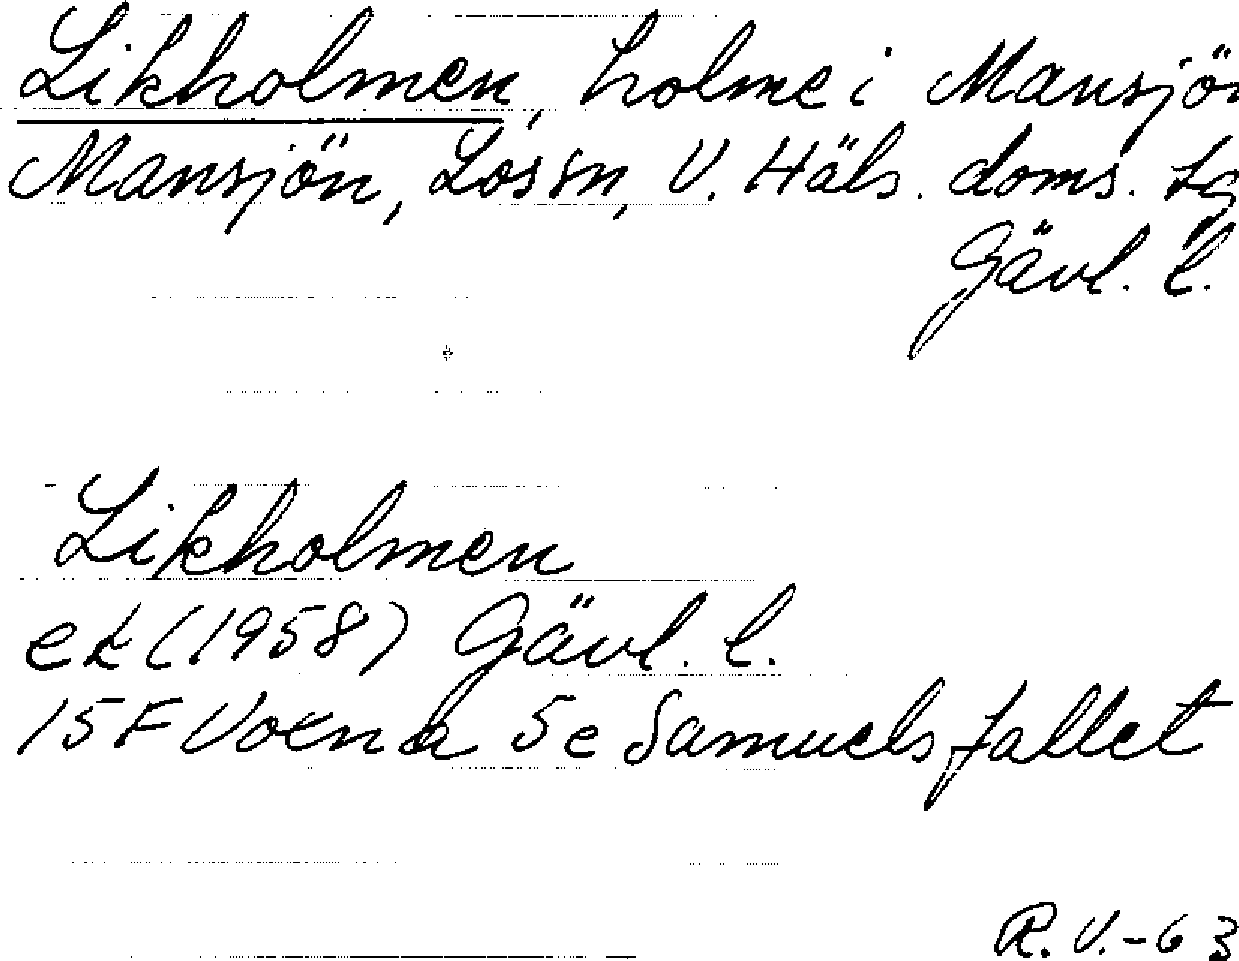 Likholmen, holme i Mansjön
Mansjön, Los sn, V. Häls. doms. tg
Gävl. l.
Likholmen
ek (1958) Gävl. l.
15F Voxna 5e Samuelsfallet
R.V.-63